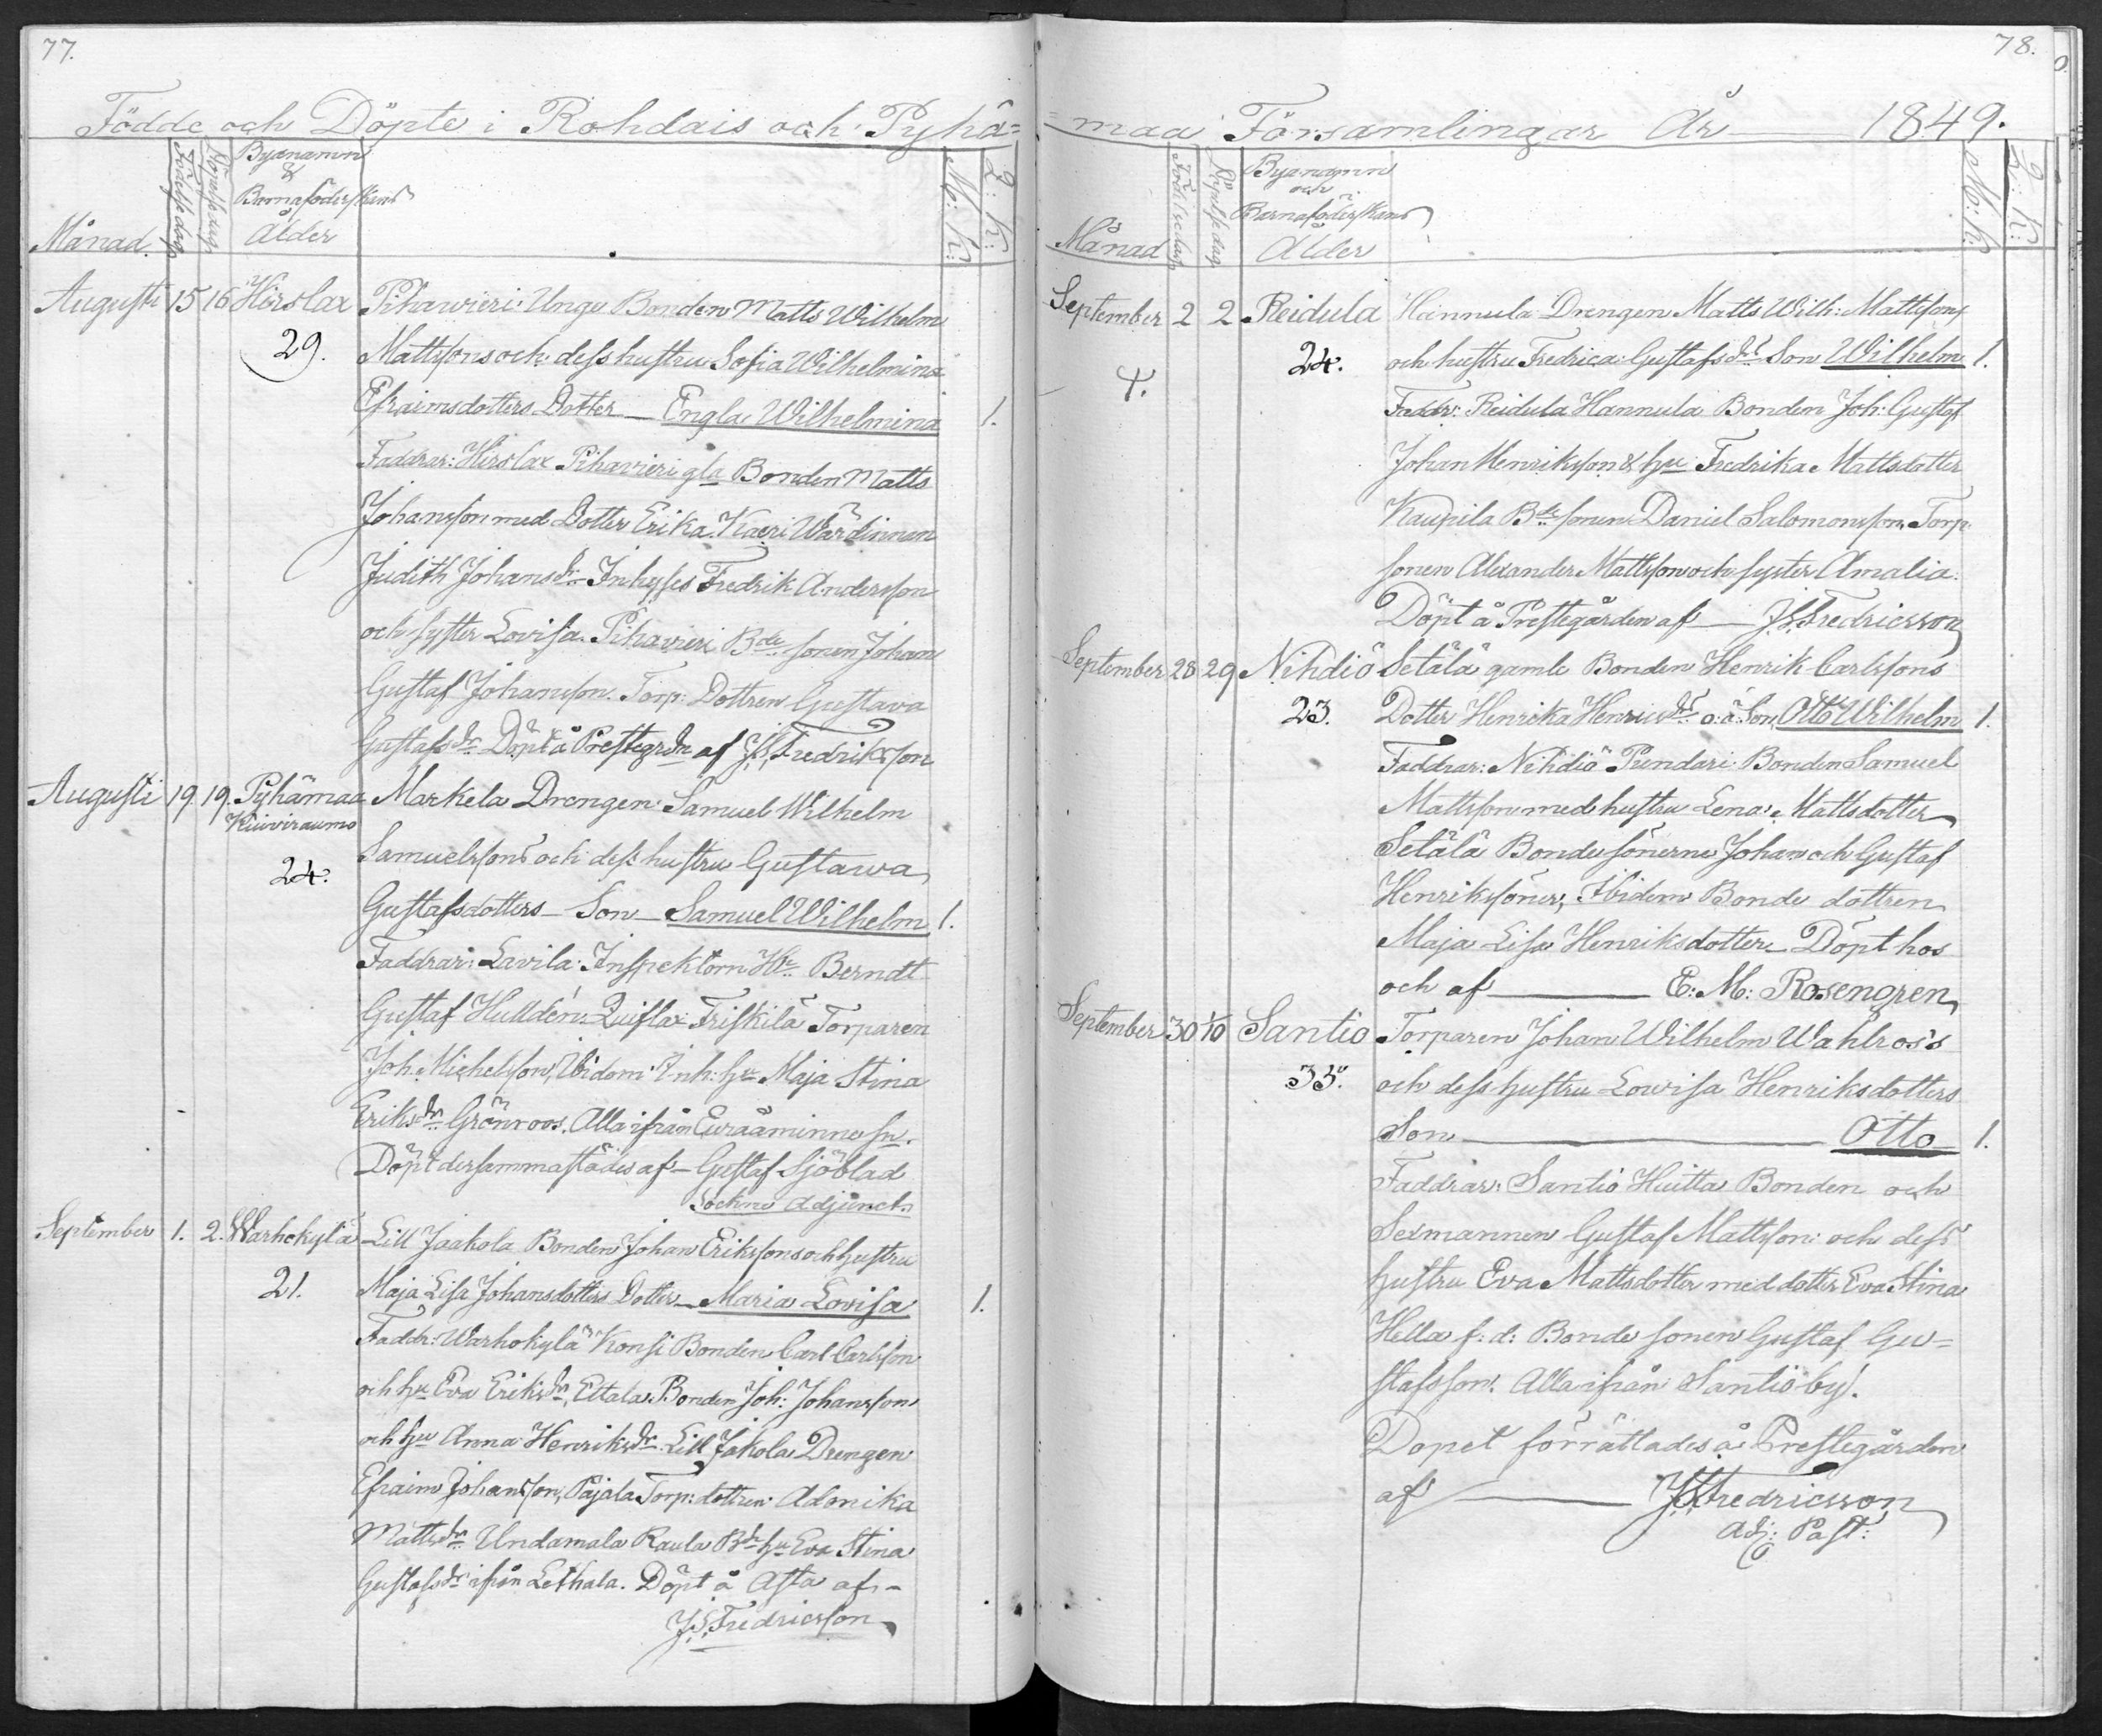 77.
Födde och Döpte i Rohdais och Pyhä=
Månad.
Födelsedag
Döpelsedag
Byanamn
&
Barnaföderskans
Ålder
M: K:
Q: K:
Augusti 15 16 Hirslax Pihavieri Unge Bonden Matts Wilhelm
29. Mattssons och dess hustru Sofia Wilhelmina
Efraimsdotters Dotter — Engla Wilhelmina 1.
Faddrar: Hirslax Pihavieri gla Bonden Matts
Johansson med Dotter Erika. Kaeri Wärdinnan
Judith Johansdr Inhyses Fredrik Andersson
och syster Lovisa. Pihavieri Bde sonen Johan
Gustaf Johansson. Torp: Dottren Gustava
Gustafsdr Döpt å Prestegrdn af J.S. Fredriksson
Augusti 19. 19. Pyhämaa Markela Drengen Samuel Wilhelm
Kuiviraumo
24. Samuelssons och dess hustru Gustawa
Gustafsdotters — Son — Samuel Wilhelm 1.
Faddrar: Lavila Inspektorn Hr Berndt
Gustaf Hulldén. Friskilä Torparen
Joh. Michelsson, Ibidem Inh: hu Maja Stina
Eriksdr Grönroos. Alla ifrån Euraåminne sn.
Döpt dersammastädes af — Gustaf Sjöblad
Sockne Adjunct.
September 1. 2. Warhokylä Lill Jaakola Bonden Johan Erikssons och hustru
21. Maja Lisa Johansdotters Dotter — Maria Lovisa 1.
Faddr: Warhokylä Konsi Bonden Carl Carlsson
och hu Eva Eriksdr, Ettala Bonden Joh: Johansson
och hu Anna Henriksdr Lill Jakola Drengen
Efraim Johansson, Pajala Torp: dottren Adonika
Mattsdr Undamala Raula Bde hu Eva Stina
Gustafsdr ifrån Lethala. Döpt å Asta af —
J.S. Fredricsson
78.
= maa Församlingar År — 1849.
Månad
Födelsedag
Döpelsedag
Byanamn
och
Barnaföderskans
Ålder
M: K:
Q: K:
September 2 2 Reidula Hannula Drengen Matts Wilh: Mattssons
24. och hustru Fredrica Gustafsdrs Son Wilhelm 1.
†. Faddr: Reidula Hannula Bonden Joh: Gustaf
Johan Henriksson & hu Fredrika Mattsdotter
Kaupila Bde sonen Daniel Salomonsson Torp.
sonen Alexander Mattsson och syster Amalia.
Döpt å Prestegården af — J.S. Fredricsson
September 28 29 Nihdiö Setälä gamle Bonden Henrik Carlssons
23. Dotter Henrika Henricsdrs o: ä: Son, Otto Wilhelm 1.
Faddrar: Nihdiö Pundari Bonden Samuel
Mattsson med hustru Lena Mattsdotter
Setälä Bonde sönerne Johan och Gustaf
Henrikssöner, Ibidem Bonde dottren
Maja Lisa Henriksdotter — Döpt hos
och af — E: M: Rosengren
September 30 1/10 Santio Torparen Johan Wilhelm Wahlros's
35. och dess hustru Lowisa Henriksdotters
Son — Otto 1.
Faddrar: Santio Huitta Bonden och
Sexmannen Gustaf Mattsson och dess
hustru Eva Mattsdotter med dotter Eva Stina
Hella f: d: Bonde sonen Gustaf Gu=
stafsson. Alla ifrån Santio by.
Dopet förrättades å Prestegården
af — J.S. Fredricsson
Adj: Past: